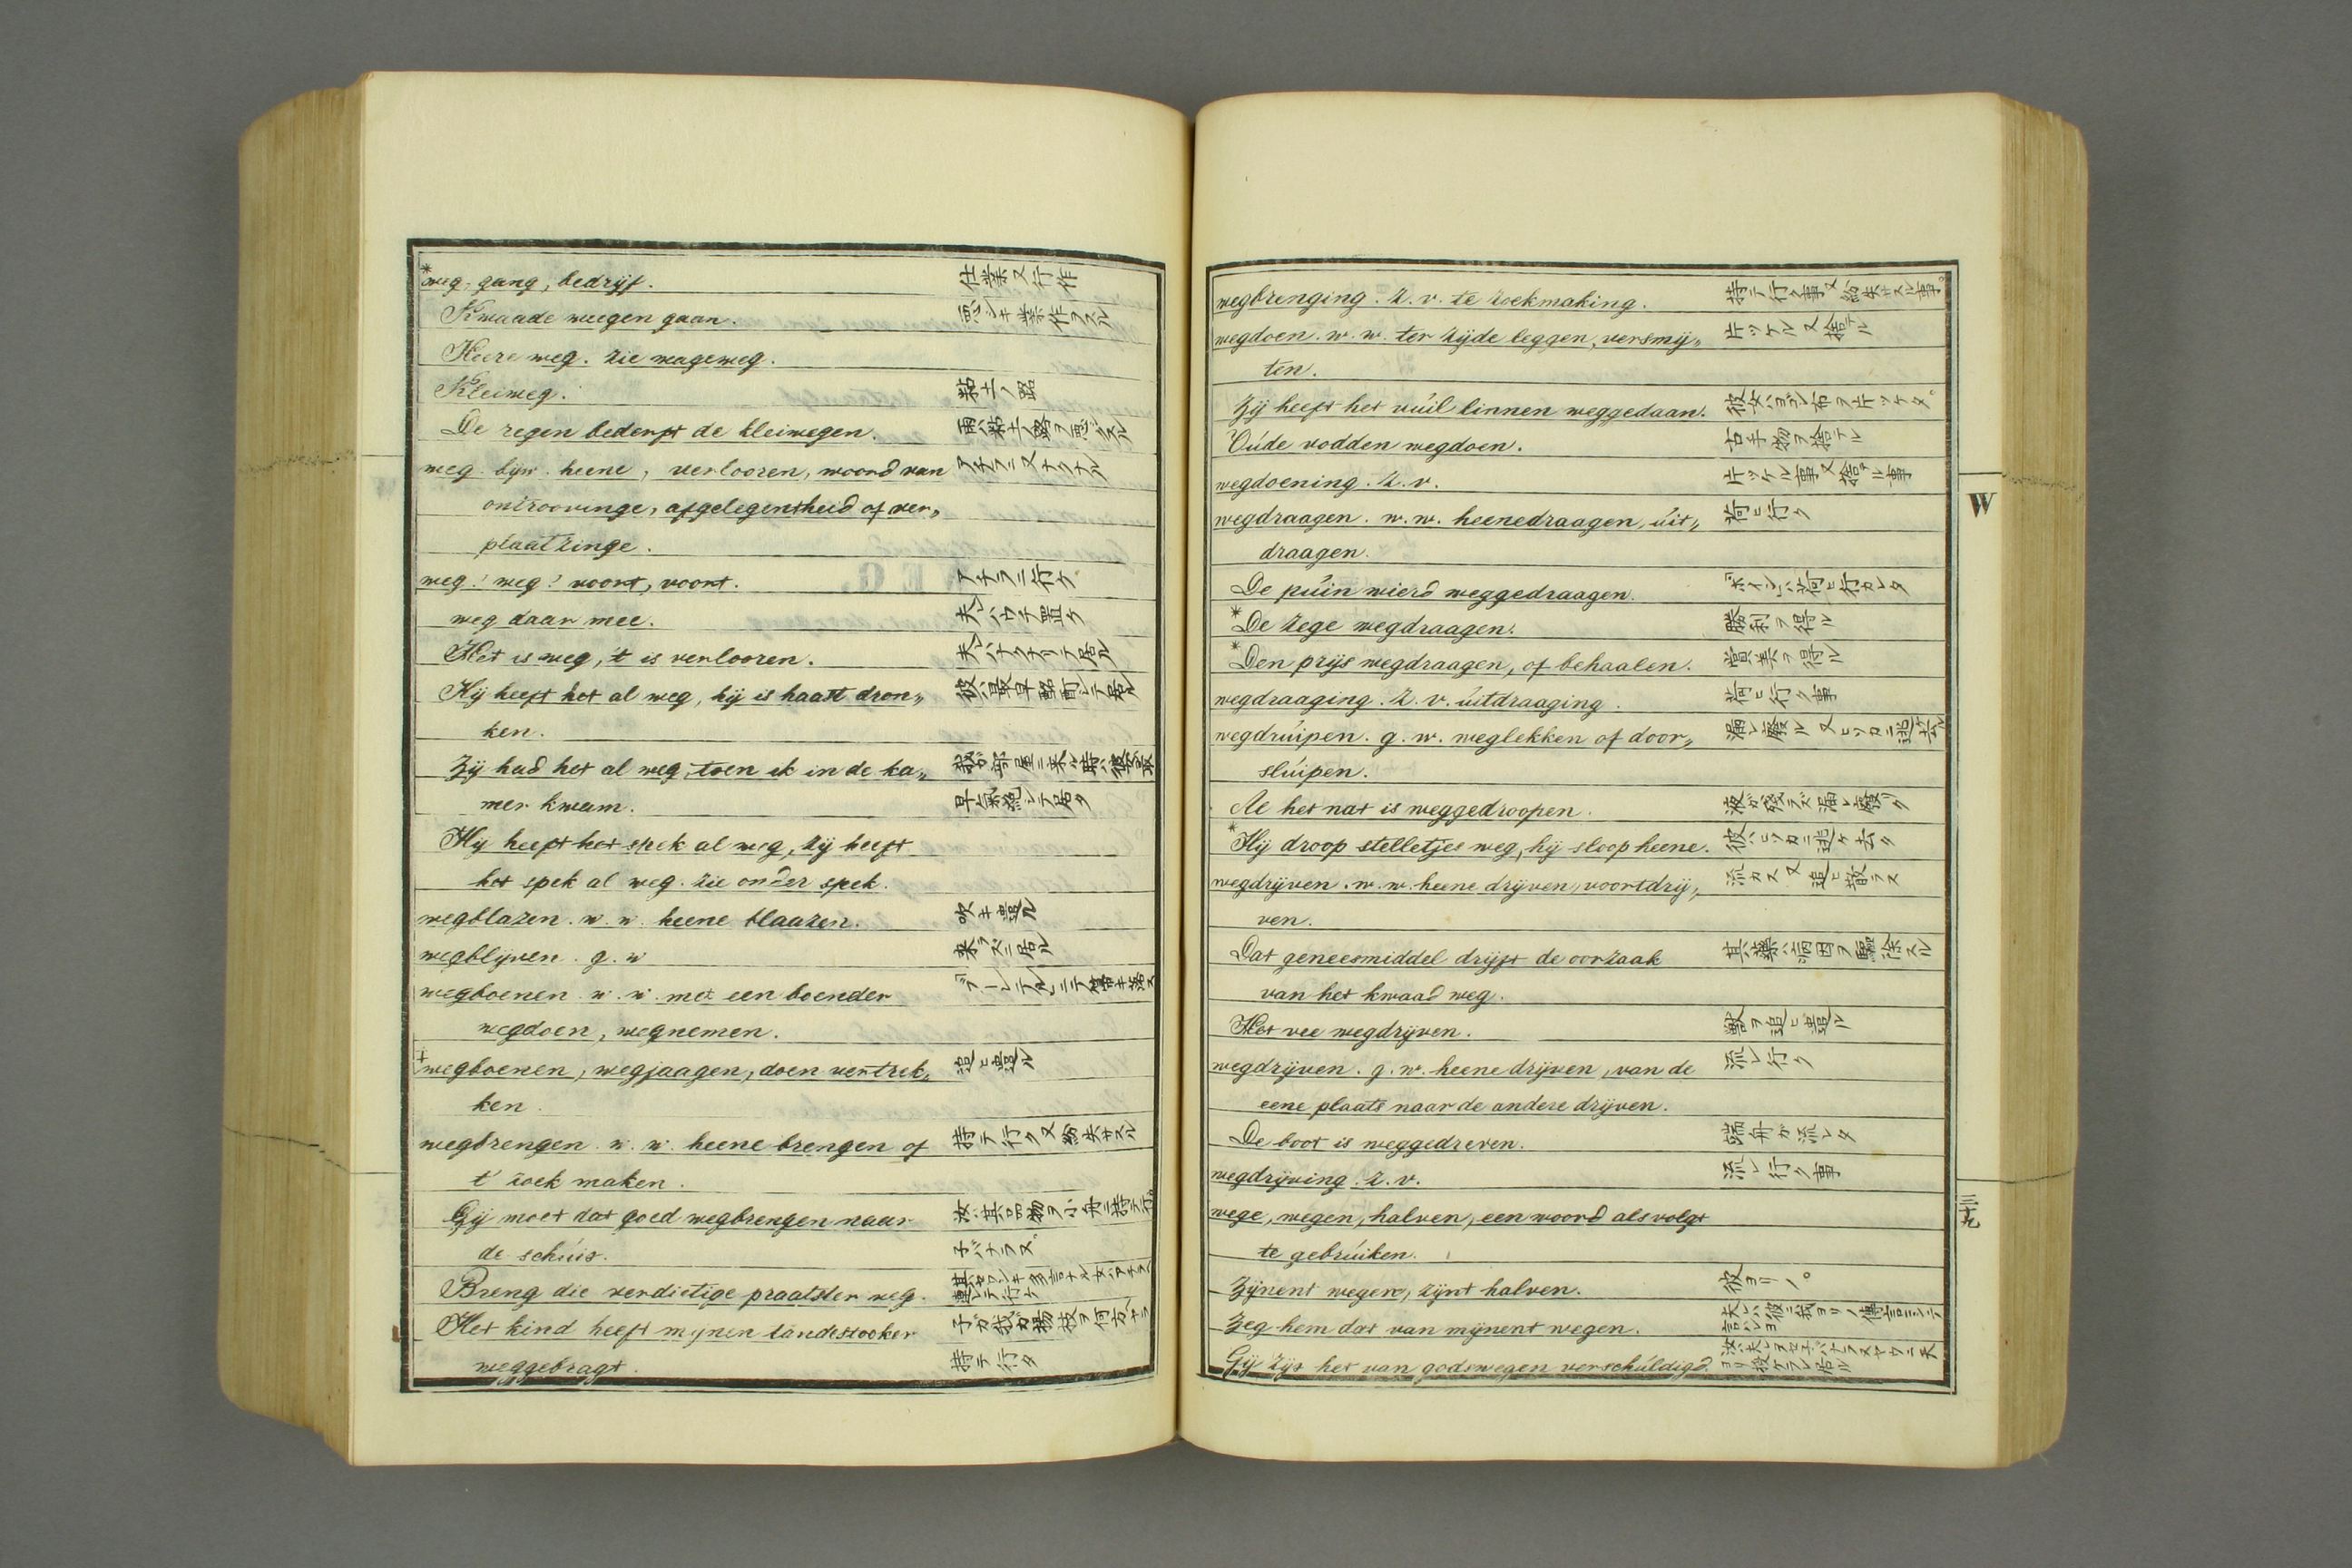 *weg, gang, bedrijf. 仕業又行作
Kwaade weegen gaan. 悪シキ業作ヲスル
Heere weg. zie wageweg.
Kleiweg. 粘土ノ路
De regen bederft de kleiwegen. 雨ハ粘土ノ路ヲ悪クスル
weg. bijw. heene, verlooren, woord van アチラニ又ナクナル
ontroovinge, afgelegentheid of ver„
plaatzinge.
weg! weg! voort, voort. アチラニ行ケ
weg daar mee. 夫レハウチ置ク
Het is weg, 't is verlooren. 夫レハナクナリテ居ル
Hij heeft het al weg, hij is haast dron„ 彼ハ最早酩酊シテ居ル
ken.
Zij had het al weg, toen ik in de ka„ 我ガ部屋ニ来ル時ハ彼女最
mer kwam. 早氣絶シテ居タ
Hij heeft het spek al weg, zij heeft
het spek al weg. zie onder spek.
wegblazen. w. w. heene blaazen. 吹キ遣ル
wegblijven. g. w 来ラズニ居ル
wegboenen. w. w. met een boender
wegdoen, wegnemen.
+wegboenen, wegjaagen, doen vertrek„ 追ヒ遣ル
ken.
wegbrengen. w. w. heene brengen of 持テ行ク又紛失サスル
t' zoek maken.
Gij moet dat goed wegbrengen naar 汝ハ其品物ヲ小舟ニ持テ行
de schuis. 子バナラヌ。
Breng die verdietige praatster weg. 連レテ行ケ
Het kind heeft mijnen tandestooker 子ガ我ガ楊枝ヲ何方ヘヤラ
weggebragt. 持テ行タ
wegbrenging. z. v. te zoekmaking. 持テ行ク事又紛失サスル事。
wegdoen. w. w. ter zijde leggen, versmij„ 片ツケル又捨テル
ten.
Zij heeft het vúil linnen weggedaan. 彼女ハヨゴレ布ヲ片ツケタ。
Oúde vodden wegdoen. 古手物ヲ捨テル
wegdoening. z. v. 片ツケル事又捨テル事
wegdraagen. w. w. heenedraagen, úit„ 荷ヒ行ク
draagen.
De púin wierd weggedraagen. 「ポイン」ハ荷ヒ行カレタ
*De zege wegdraagen. 勝利ヲ得ル
*Den prijs wegdraagen, of behaalen. 賞美ヲ得ル
wegdraaging. z. v. úitdraaging. 荷ヒ行ク事
wegdrúipen. g. w. weglekken of door„ 漏レ廢ル又ヒソカニ逃ケ去ル
slúipen.
Al het nat is weggedroopen. 液ガ殘ラズ漏レ廢ツタ
*Hij droop stelletjes weg, hij sloop heene. 彼ハヒソカニ逃ケ去ツタ
wegdrijven. w. w. heene drijven, voortdrij„ 流カス又追ヒ散ラス
ven.
Dat geneesmiddel drijft de oorzaak 其藥ハ病因ヲ驅除スル
van het kwaad weg.
Het vee wegdrijven. 獣ヲ追ヒ遣ル
wegdrijven. g. w. heene drijven, van de 流レ行ク
eene plaats naar de andere drijven.
De boot is weggedreven. 端舟ガ流レタ
wegdrijving. z. v. 流レ行ク事
wege, wegen, halven, een woord als volgt
te gebrúiken.
Zijnent wegen, zijnt halven. 彼ヨリノ。
Zeg hem dat van mijnent wegen.
Gij zijt het van godswegen verschúldigd.
W